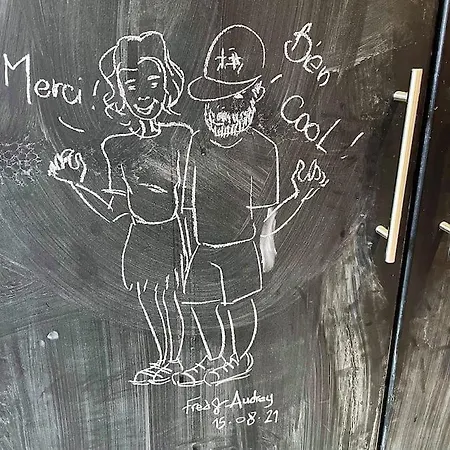 Merci !
Bien
Cool !
#
Fred & Audrey
15.08.21